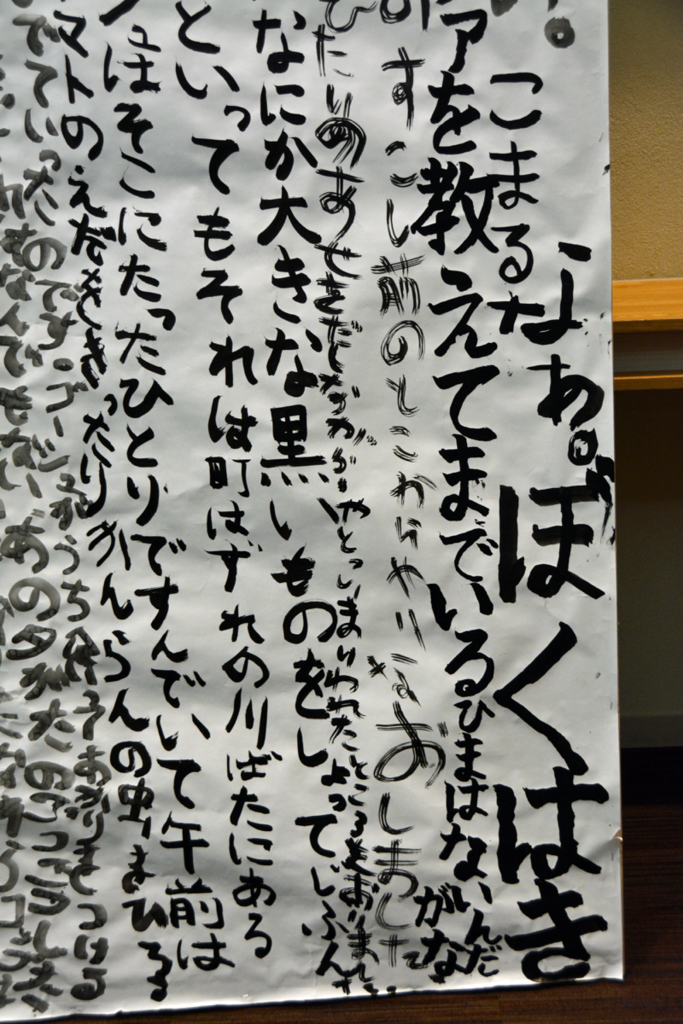 。こまるなぁ。ぼくはき
ァを教えてまでいるひまはないんだがな
すこし前のところからやりなおしました
ひたいのあせをだしながらやっといまいわれたところをとおりました
なにか大きな黒いものをしょってじぶん
といってもそれは町はずれの川ばたにある
シュはそこにたったひとりですんでいて午前は
マトのえだをきったりかんらんの虫をひろ
でていったのです。ゴーシュがうちへ あかりをつける
れはなんでもない、あの夕がたのごつごつした